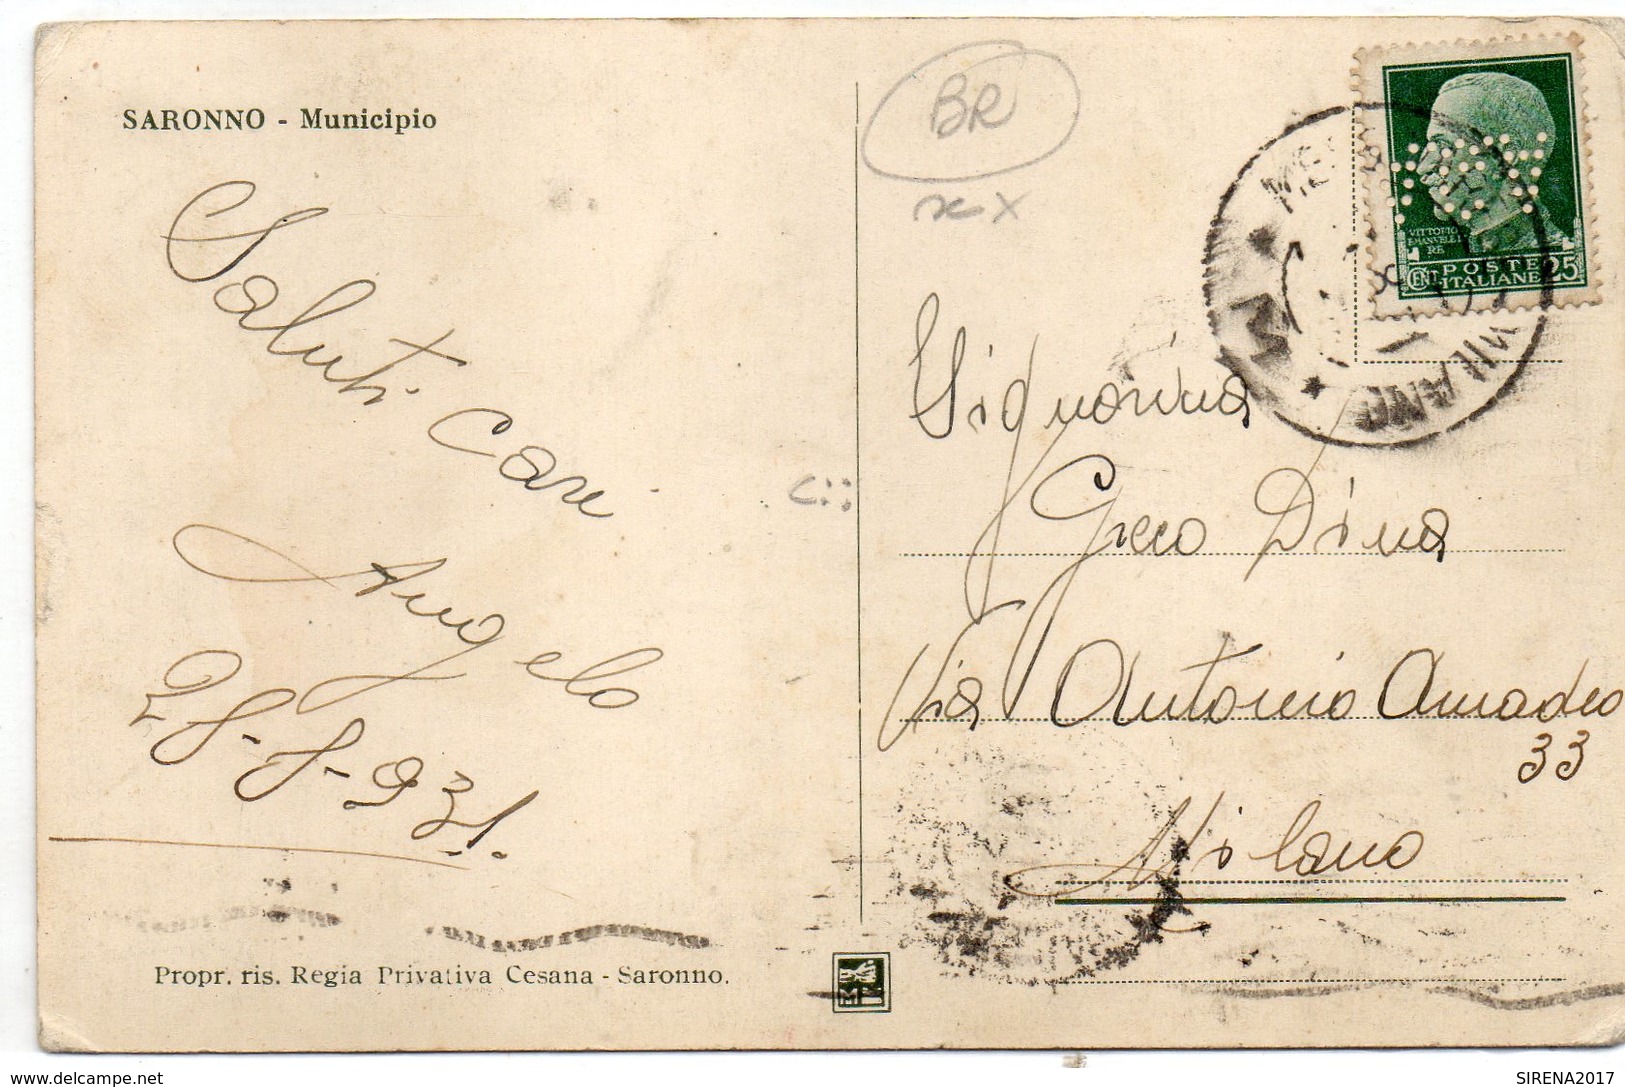 SARONNO - Municipio
Saluti Cari
Angelo
28-8-931.
Propr. ris. Regia Privativa Cesana - Saronno.
BR
x x
VITTORIO
EMANUELE
RE
POSTE
CENT. ITALIANE 25
MILANO
Signorina
Greco Dina
Via Antonio Amadeo
33
Milano
www.delcampe.net
SIRENA2017